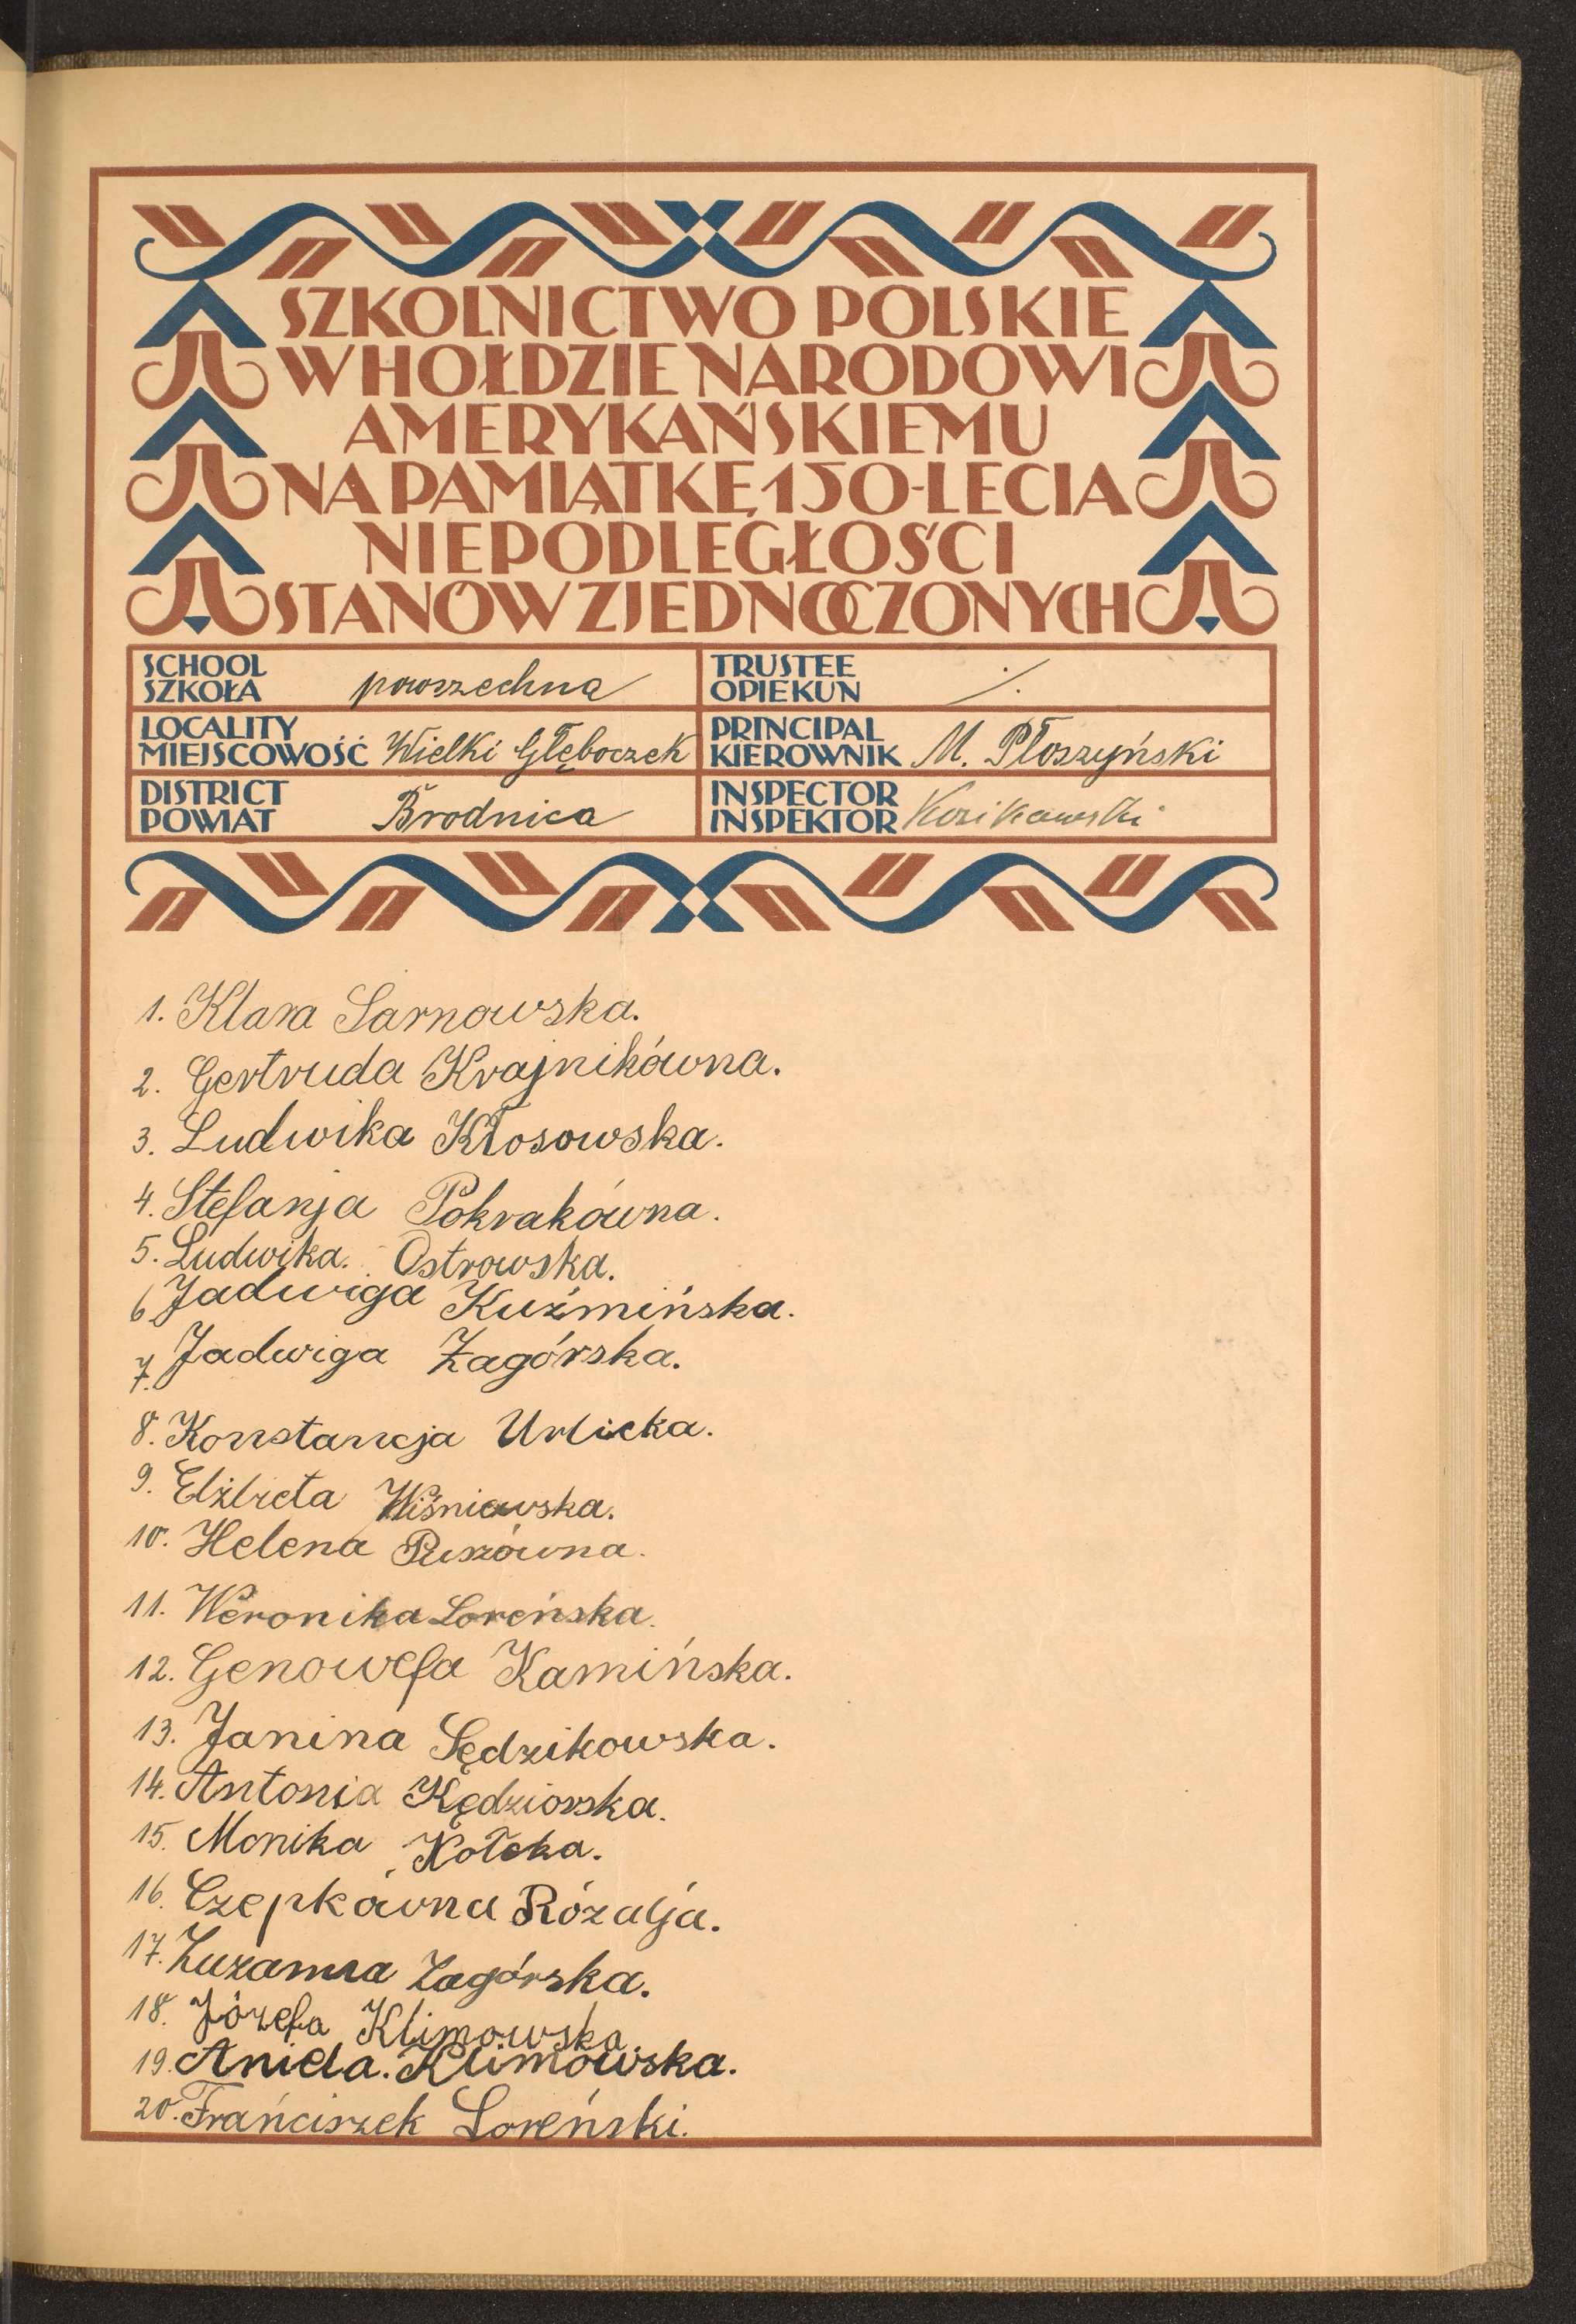 SZKOLNICTWO POLSKIE
W HOŁDZIE NARODOWI
AMERYKAŃSKIEMU
NA PAMIĄTKĘ 150-LECIA
NIEPODLEGŁOŚCI
STANÓW ZJEDNOCZONYCH
SCHOOL
SZKOŁA powszechna
TRUSTEE
OPIEKUN
LOCALITY
MIEJSCOWOŚĆ Wielki Głęboczek
PRINCIPAL
KIEROWNIK M. Płoszyński
DISTRICT
POWIAT Brodnica
INSPECTOR
INSPEKTOR
1. Klara Sarnowska.
2. Gertruda Krajnikówna.
3. Ludwika Kłosowska.
4. Stefanja Pokrakówna.
5. Ludwika. Ostrowska.
6 Jadwiga Kuźmińska.
7. Jadwiga Zagórska.
8. Konstancja Urlicka.
9. Elżbieta Wiśniewska.
10. Helena
11. Weronika Loreńska.
12. Genowefa Kamińska.
13. Janina Sędzikowska.
14. Antonia Kędziorska.
15. Monika
16. Czepkówna Rózalja.
17. Zuzanna Zagórska.
18. Józefa Klimowska.
19. Aniela. Klimowska.
20. Frańciszek Loreński.